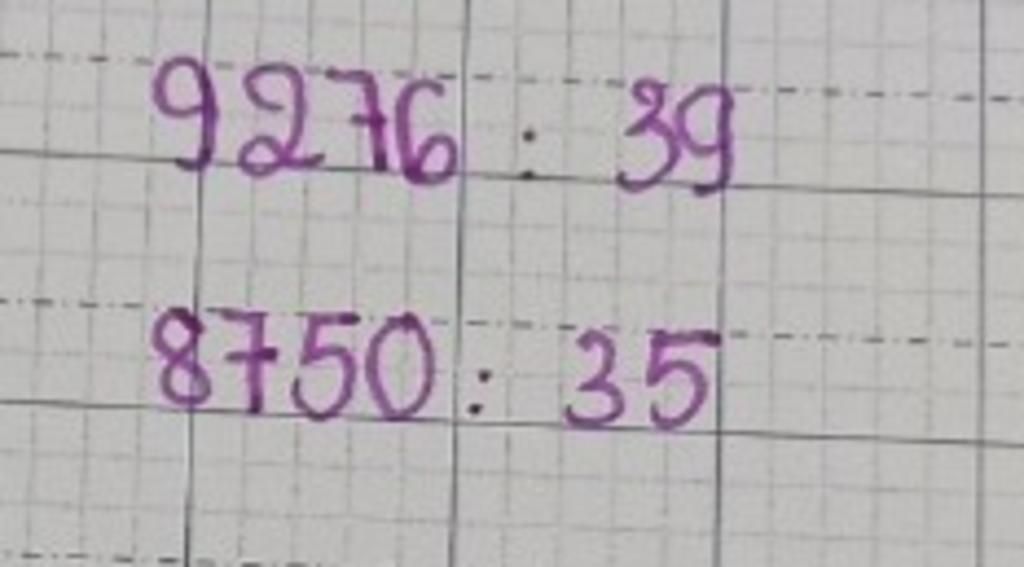 9276 : 39
8750 : 35